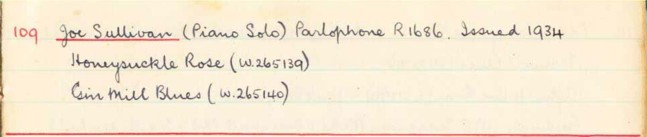 109 Joe Sullivan (Piano Solo) Parlophone R1686. Issued 1934
Honeysuckle Rose (W.265139)
Gin Mill Blues (W.265140)